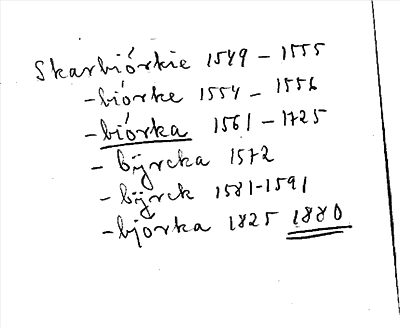 Skarbiórkie 1549 – 1555
– biórke 1554 – 1556
– biórka 1561 – 1725
– bÿrcka 1572
– bÿrck 1581–1591
– bjorka 1825 1880